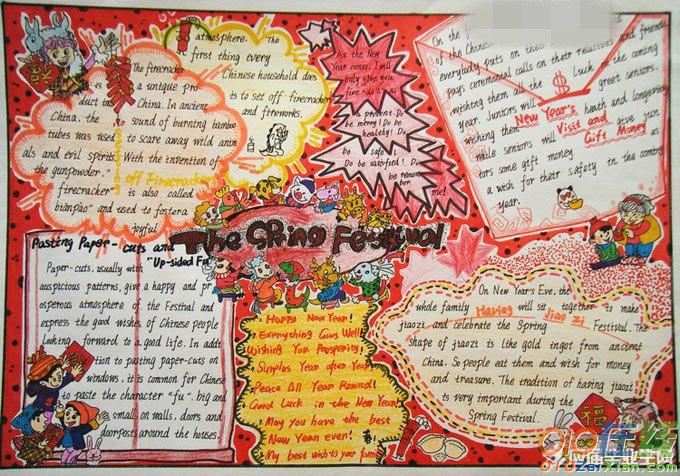 atmosphere. The
first thing every
Chinese household does
is to set off firecrackers
and fireworks.
The firecracker
is a unique pro
duct in China. In ancient
China, the sound of burning bamboo
tubes was used to scare away wild anim
als and evil spirits. With the invention of
the gunpowder,"
off Firecrackers
firecracker" is also called
bianpao" and used to foster a
joyful
As the New
Year comes, I will
only give you
five "do's" as
a present. Do
be merry! Do be
healthy! Do
be safe!
Do be satisfied! Do
be remember
me!
On the
of the Chinese
everybody puts on
and friends
pays ceremonial calls on their relatives
wishing them all the Luck in the coming
year. Juniors will greet seniors,
wishing them heath and longevity
New Year's
Visit and
Gift Money
male seniors will give jun
iors some gift money as
a wish for their safety in the coming
year.
The SPring Festival
Pasting Paper-cuts and
"Up-sided Fu"
Paper-cuts, usually with
auspicious patterns, give a happy and pr
osperous atmosphere of the Festival and
express the good wishes of Chinese people
looking forward to a good life. In addi
tion to pasting paper-cuts on
windows, it is common for Chinese
to paste the character "fu", big and
small on walls, doors and
doorposts around the houses.
Happy New Year!
Everything Goes Well!
Wishing You Prosperity!
Surplus Year after Year
Peace All Year Round!
Good Luck in the New Year!
May you have the best
New Year ever!
My best wish to your family
On New Year's Eve, the
whole family will sit together to make
Having Jiao Zi
jiaozi and celebrate the Spring Festival. The
shape of jiaozi is like gold ingot from ancient
China. So people eat them and wish for money
and treasure. The tradition of having jiaozi
is very important during the
Spring Festival.
福